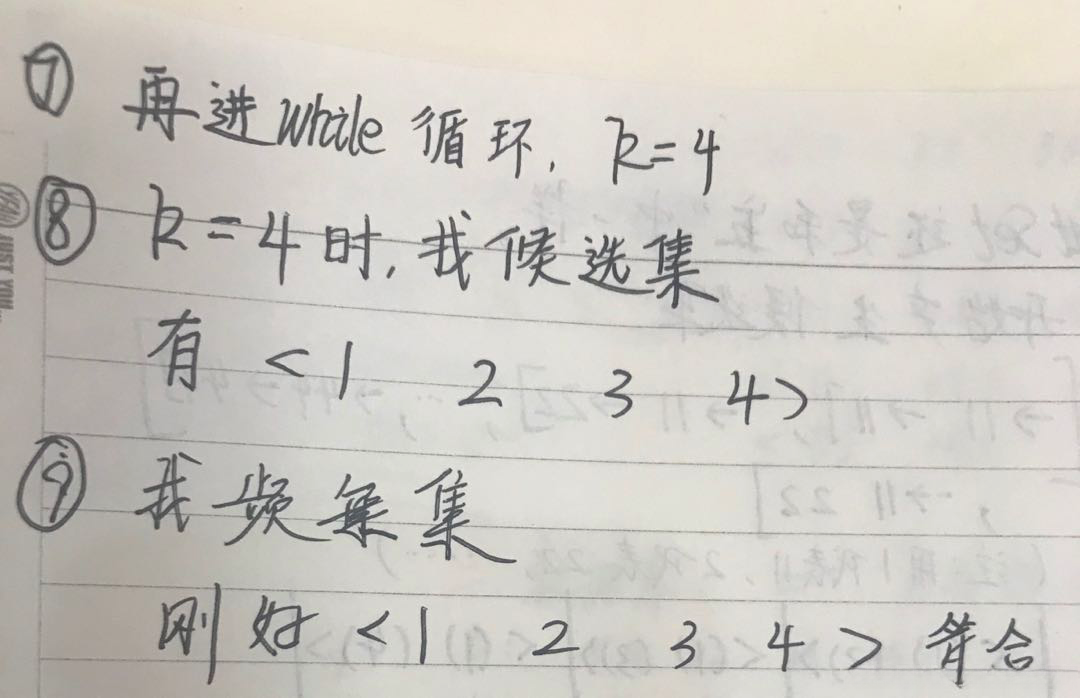 ⑦ 再进while循环, k=4
⑧ k=4时,我候选集
有 <1 2 3 4>
⑨ 我频繁集
刚好<1 2 3 4> 符合